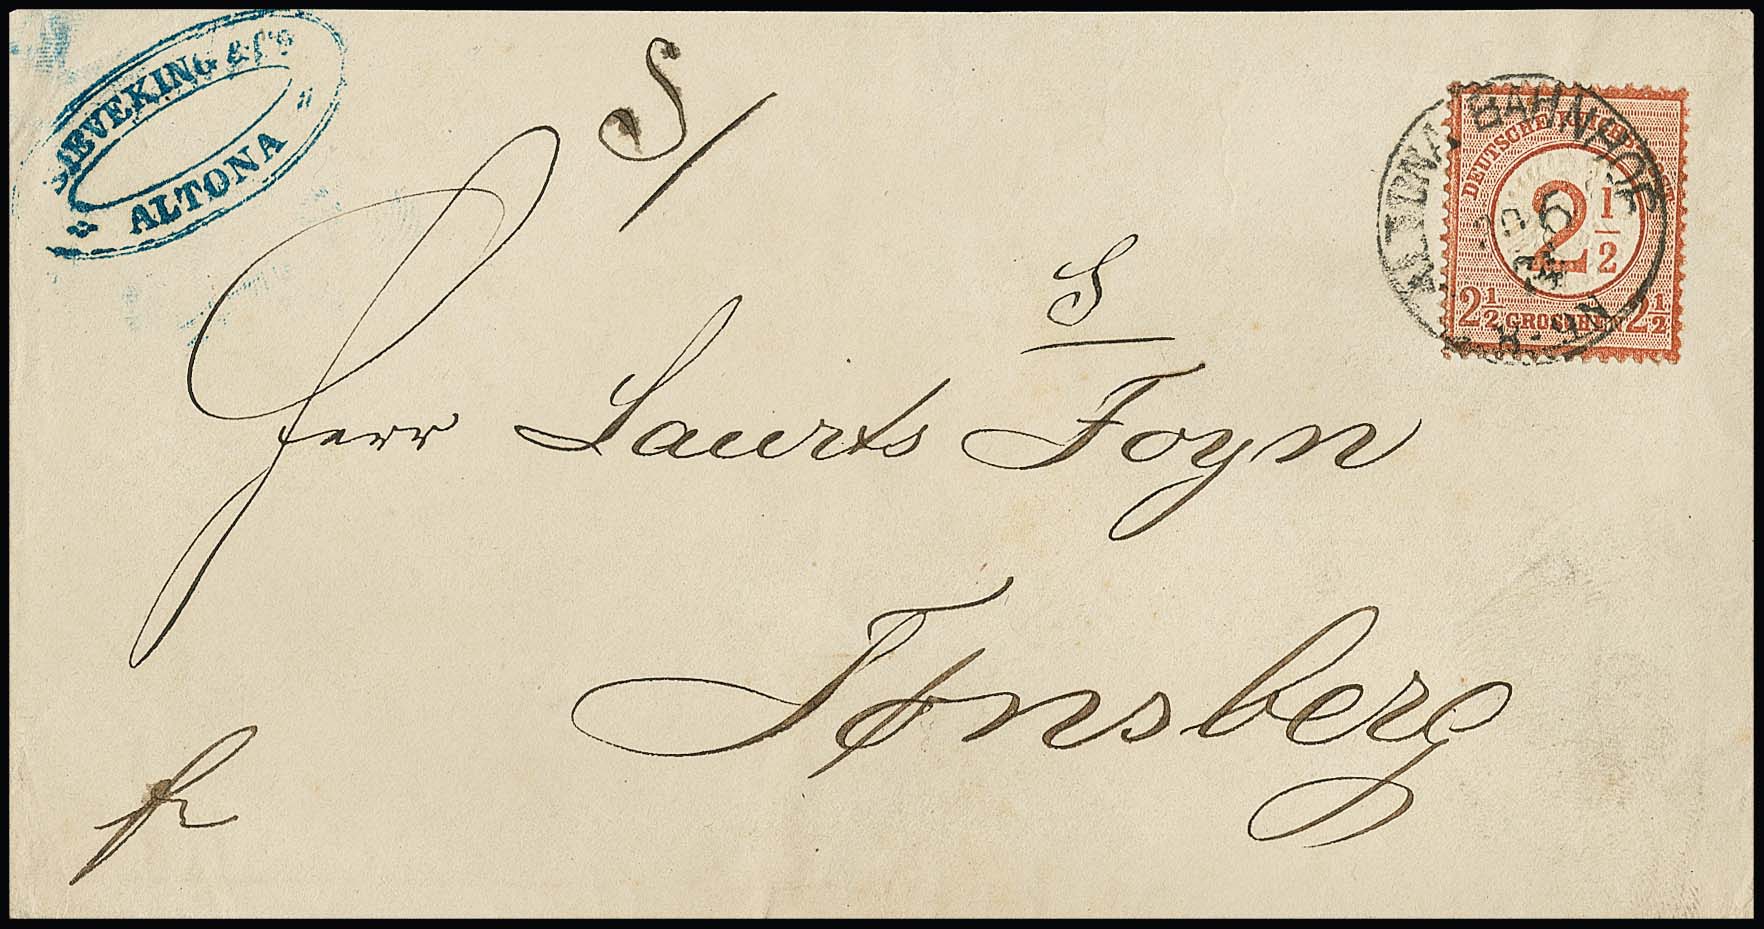 SIEVEKING & Co
ALTONA
S/
S
Herr Laurts Foyn
Tønsberg
fr
ALTONA BAHNHOF
6
DEUTSCHE REICHSPOST
2 1/2
2 1/2 GROSCHEN 2 1/2